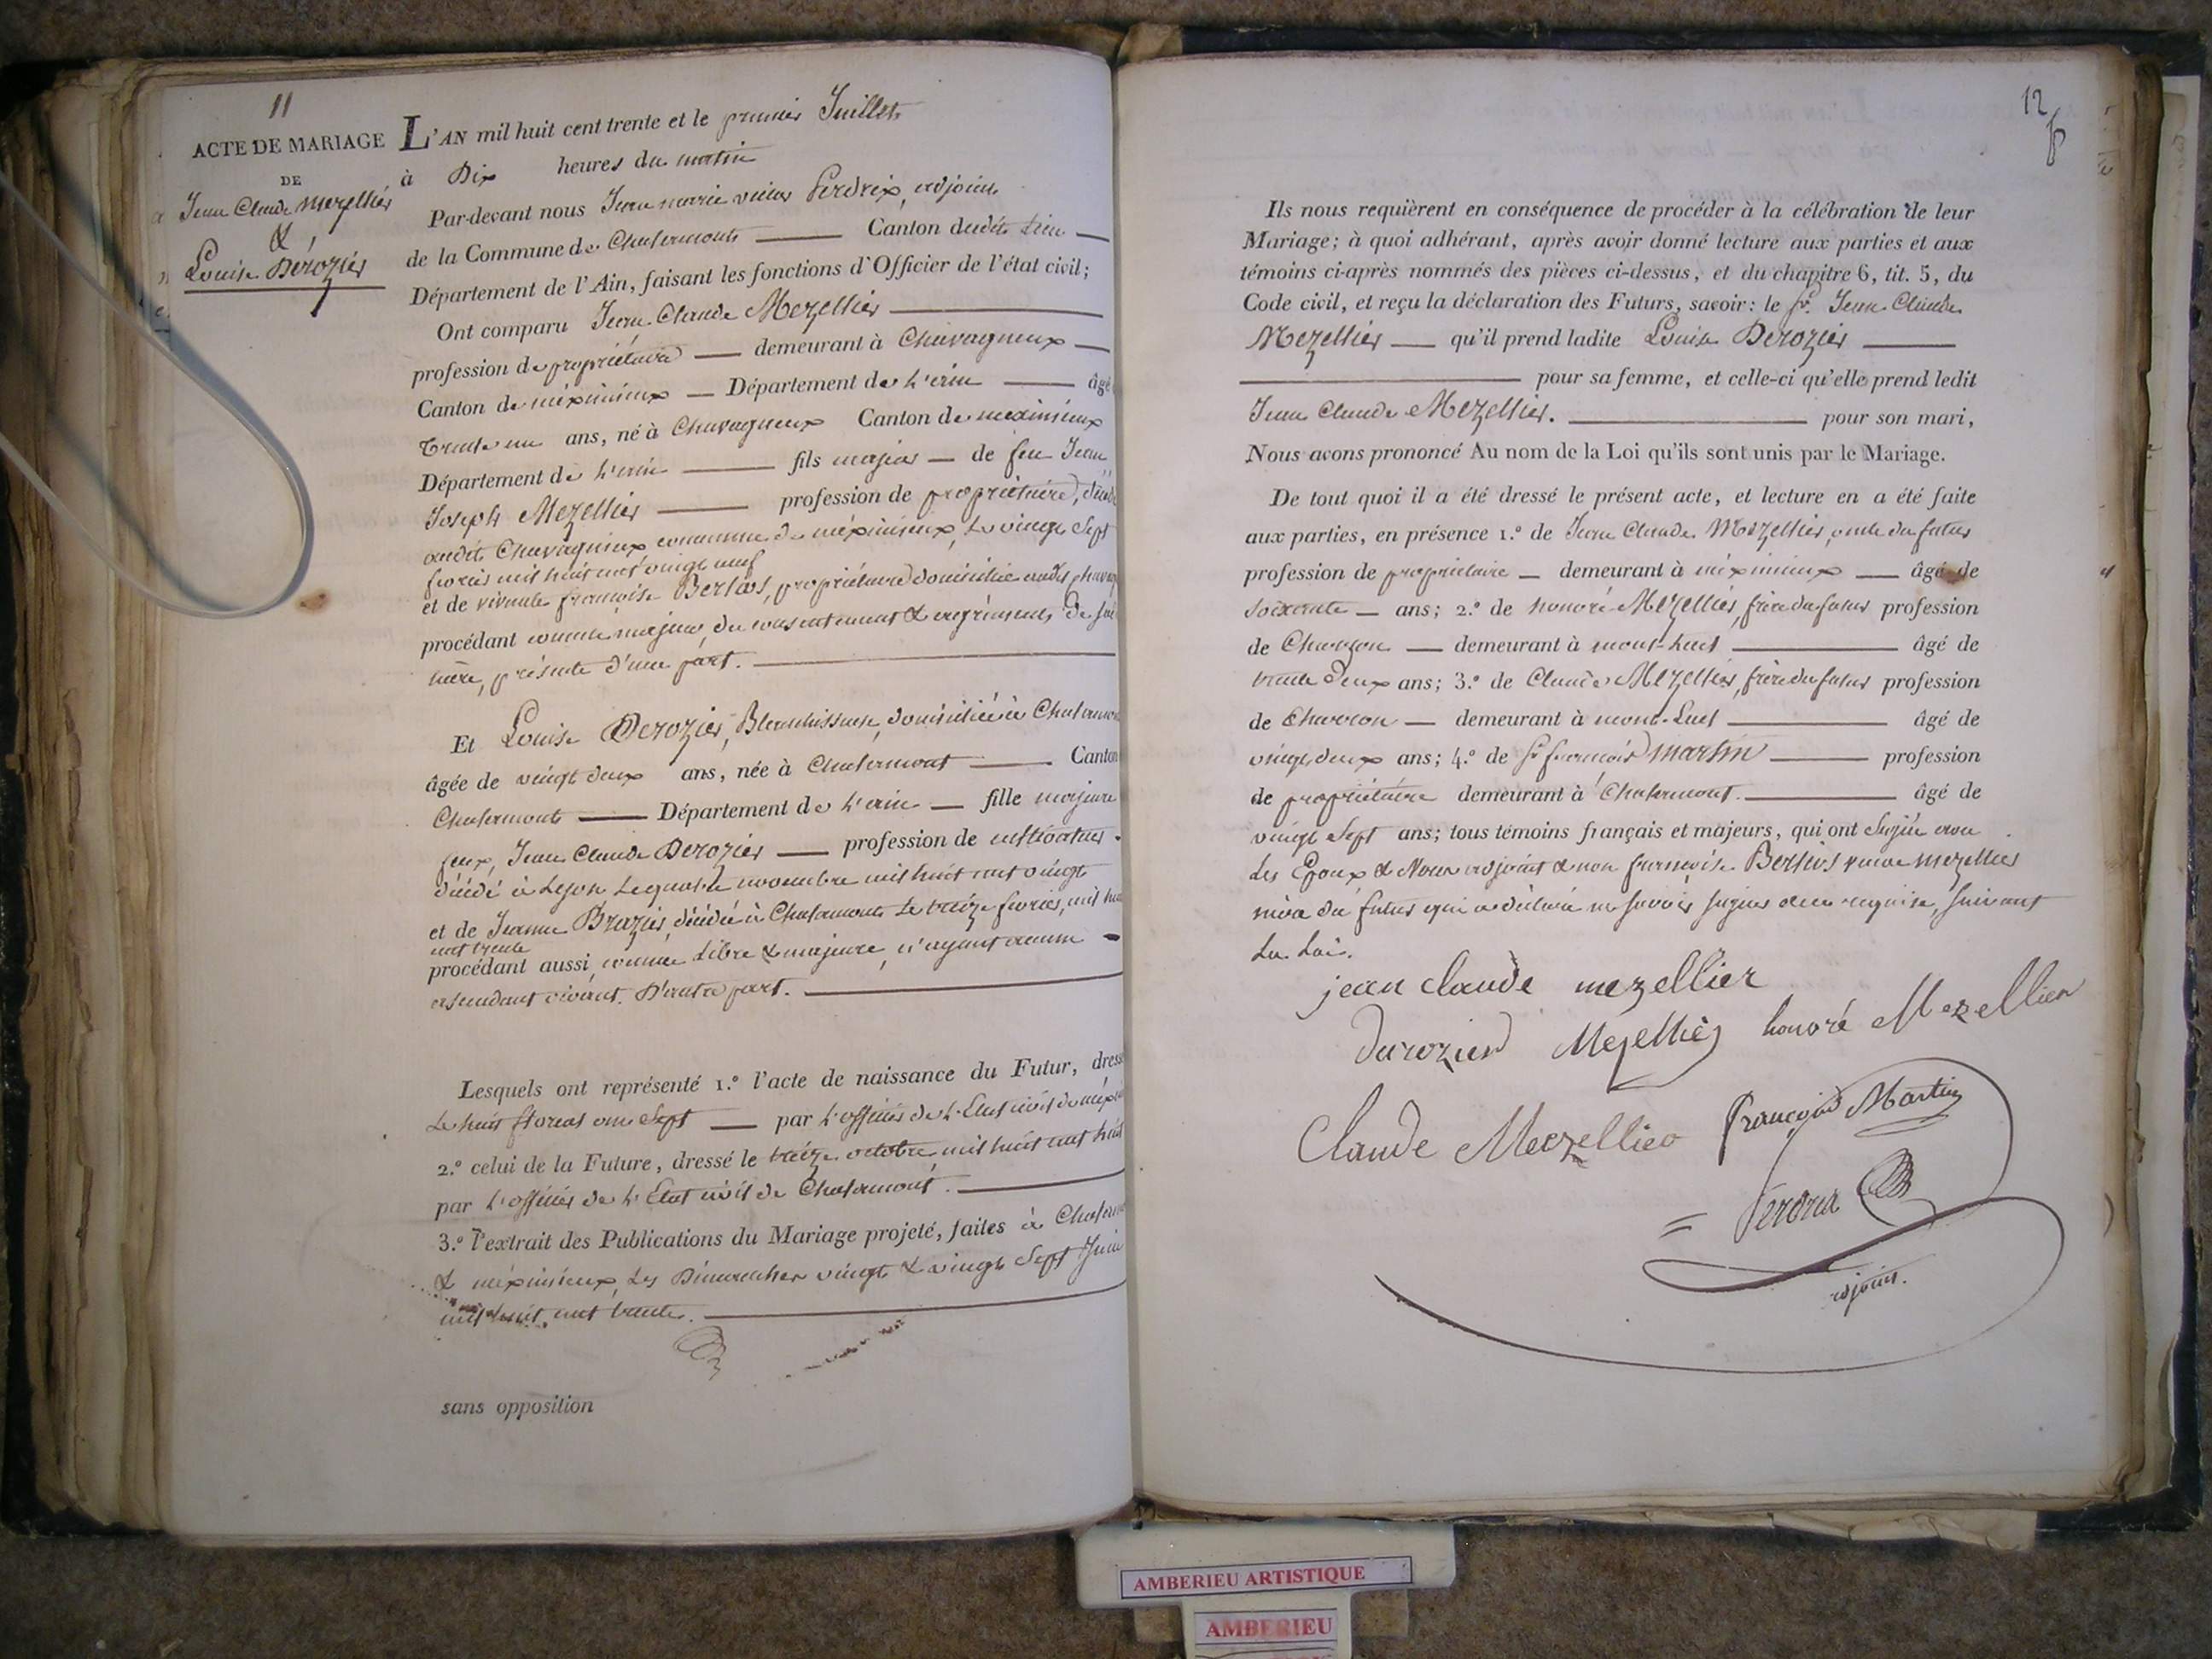 11
ACTE DE MARIAGE
DE
Jean Claude Mezellier
&
Louise Dérozier
L'AN mil huit cent trente et le premier Juillet
à Dix heures du matin
Par-devant nous Jean marie victor Perdrix, adjoint
de la Commune de Chalamont Canton dudit Lieu
Département de l'Ain, faisant les fonctions d'Officier de l'état civil;
Ont comparu Jean Claude Mezellier
profession de propriétaire demeurant à Chavagneux
Canton de méximieux Département de L'ain âgé
trente un ans, né à Chavagneux Canton de meximieux
Département de L'ain fils majeur de feu Jean
Joseph Mezellier profession de propriétaire, décédé
audit Chavagnieux commune de méximieux, Le vingt Sept
fevrier mil huit cent vingt neuf
et de vivante françoise Berlios, propriétaire domiciliée audit
procédant comme majeur, du consentement & agrément de
mère, présente d'une part.
Et Louise Derozier, Blanchisseuse, domiciliée à Chalamont
âgée de vingt deux ans, née à Chalamont Canton
Chalamont Département de L'ain fille majeure
feux, Jean Claude Derozier profession de cultivateur
décédé à Lyon Le quatre novembre mil huit cent vingt
et de Jeanne Brazier, décédée à Chalamont Le treize fevrier, mil huit
cent trente
procédant aussi, comme Libre & majeure, n'ayant aucun
asendant vivant. D'autre part.
Lesquels ont représenté 1.º l'acte de naissance du Futur, dressé
Le huit floreal an Sept par L'officier de L'Etat civil de
2.º celui de la Future, dressé le treize octobre mil huit cent huit
par L'officier de L'Etat civil de Chalamont.
3.º l'extrait des Publications du Mariage projeté, faites à
& méximieux, Les Dimanches vingt & vingt Sept Juin
mil huit cent trente.
sans opposition
12
Ils nous requièrent en conséquence de procéder à la célébration de leur
Mariage; à quoi adhérant, après avoir donné lecture aux parties et aux
témoins ci-après nommés des pièces ci-dessus, et du chapitre 6, tit. 5, du
Code civil, et reçu la déclaration des Futurs, savoir: le sr. Jean Claude
Mezellier qu'il prend ladite Louise Derozier
pour sa femme, et celle-ci qu'elle prend ledit
Jean Claude Mezellier. pour son mari,
Nous avons prononcé Au nom de la Loi qu'ils sont unis par le Mariage.
De tout quoi il a été dressé le présent acte, et lecture en a été faite
aux parties, en présence 1.º de Jean Claude Mezellier, oncle du futur
profession de propriétaire demeurant à méximieux âgé de
soixante ans; 2.º de honoré Mezellier, frère du futur profession
de Charron demeurant à mont-Luel âgé de
trente deux ans; 3.º de Claude Mezellier, frère du futur profession
de Charron demeurant à mont-Luel âgé de
vingt deux ans; 4.º de sr françois martin profession
de propriétaire demeurant à Chalamont. âgé de
vingt Sept ans; tous témoins français et majeurs, qui ont Signé avec
Les Epoux & Nous adjoint & non françoise Berlios veuve mezellier
mère du futur qui a déclaré ne savoir signer de ce requise, suivant
La Loi.
jean claude mezellier
derozier Mezelliér honoré Mezellier
Claude Mezellier françois Martin
Perdrix
adjoint.
AMBERIEU ARTISTIQUE
AMBERIEU